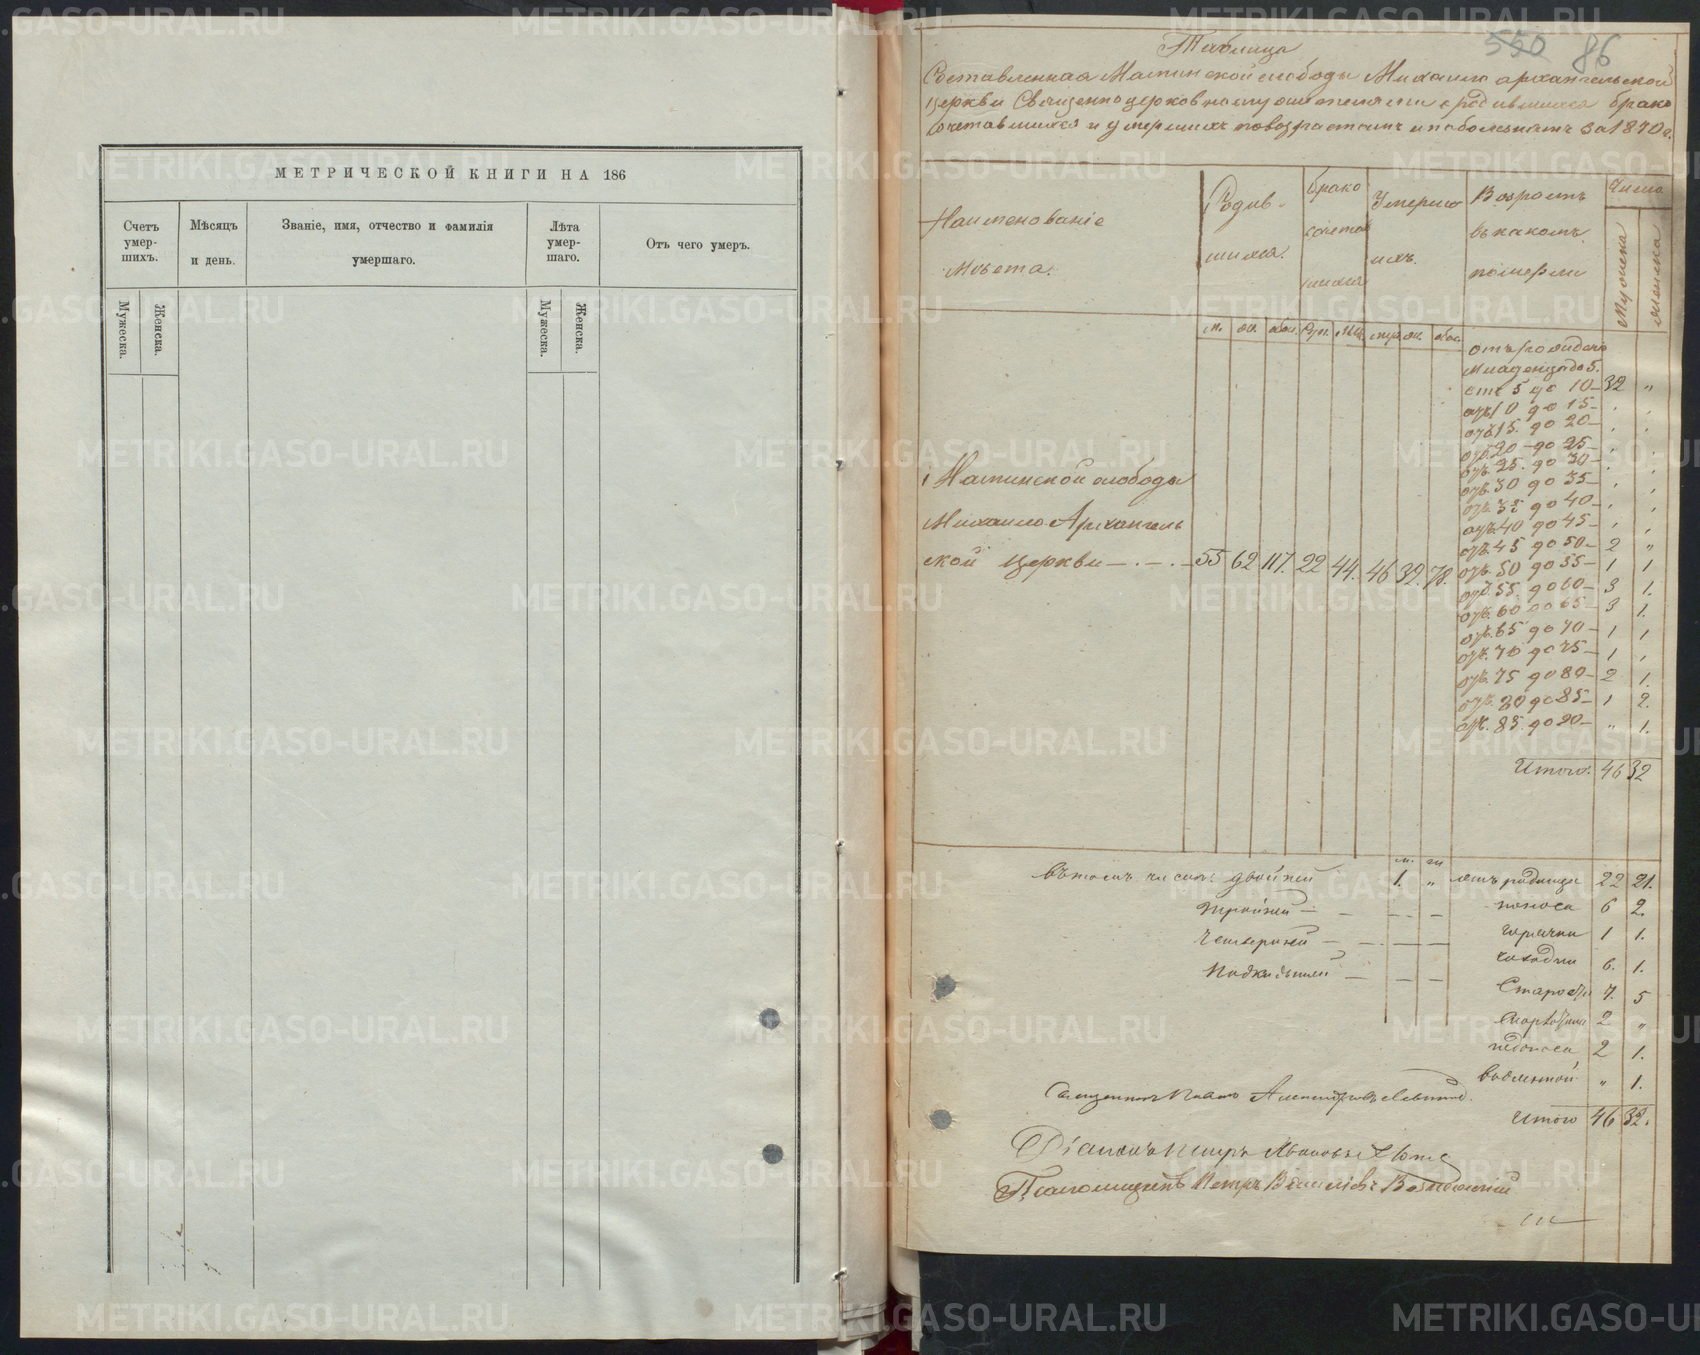 МЕТРИЧЕСКОЙ КНИГИ НА 186
Счетъ умер- шихъ.
Мѣсяцъ и день.
Званіе, имя, отчество и фамилія умершаго.
Лѣта умер- шаго.
Отъ чего умеръ.
Мужеска.
Женска.
Мужеска.
Женска.
550 86
Таблица
Составленная слободы Михаило архангельской
церкви Священноцерковнослужителями о родившихся брако
сочетавшихся и умершихъ по возрастамъ и по болѣзнямъ за 1870 г.
Наименованіе
мѣста.
Родив-
шихся.
Брако
сочетав
шихся
Умерш
ихъ.
Возрастъ
въ какомъ
померли
Число
Мужеска
женска
м. ж. обои.
отъ рожденія
младенцъ до 5.
отъ 5 до 10 – 32 „
отъ 10 до 15 –
отъ 15 до 20 –
отъ 20 до 25 –
отъ 25 до 30 –
отъ 30 до 35 –
отъ 35 до 40 –
отъ 40 до 45 –
отъ 45 до 50 – 2 „
отъ 50 до 55 – 1 1
отъ 55 до 60 – 3 1.
отъ 60 до 65 – 3 1.
отъ 65 до 70 – 1 1
отъ 70 до 75 – 1
отъ 75 до 80 – 2 1.
отъ 80 до 85 – 1 2.
отъ 85 до 90 – „ 1.
слободы
Михаило-Архангель
ской церкви 55 62 117. 22 44. 46 32. 78.
Итого. 46 32
въ томъ числѣ двойней 1. „ родимца 22 21.
тройней – – – поноса 6 2.
Четверней – – – горячки 1 1.
Подкидышей – – – 6. 1.
Старости 7. 5
2 „
2 1.
„ 1.
Итого 46 32.
Священникъ Павелъ Александровъ
Діаконъ Петръ
Пономарь Петръ Васильевъ
METRIKI.GASO-URAL.RU